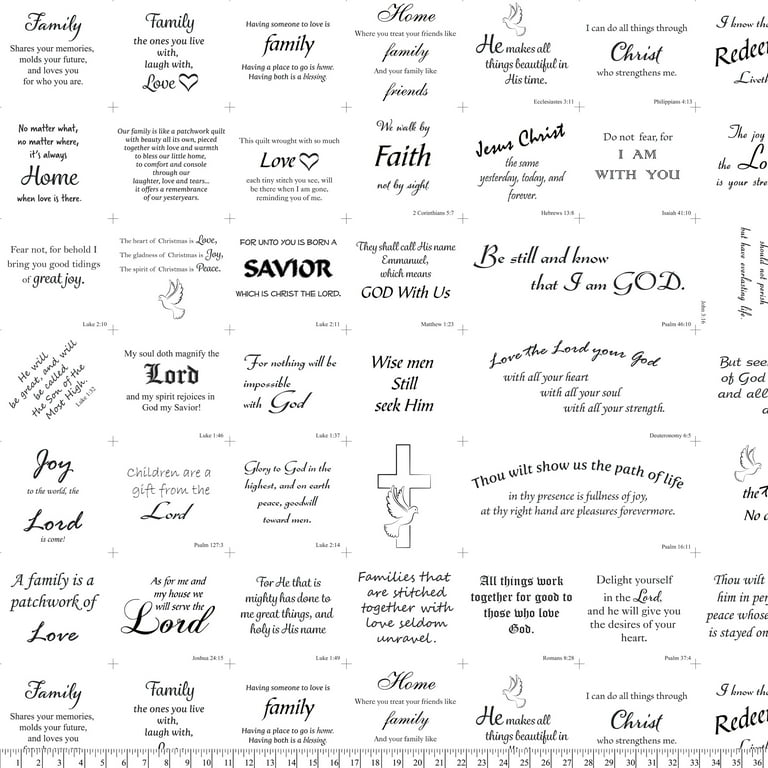 Family
Shares your memories,
molds your future,
and loves you
for who you are.
Family
the ones you live
with,
laugh with,
Love
Having someone to love is
family
Having a place to go is home.
Having both is a blessing.
Home
Where you treat your friends like
family
And your family like
friends
He makes all
things beautiful in
His time.
Ecclesiastes 3:11
I can do all things through
Christ
who strengthens me.
Philippians 4:13
I know tha
Redee
Liveth
No matter what,
no matter where,
it's always
Home
when love is there.
Our family is like a patchwork quilt
with beauty all its own, pieced
together with love and warmth
to bless our little home,
to comfort and console
through our
laughter, love and tears...
it offers a remembrance
of our yesteryears.
This quilt wrought with so much
Love
each tiny stitch you see, will
be there when I am gone,
reminding you of me.
We walk by
Faith
not by sight
2 Corinthians 5:7
Jesus Christ
the same
yesterday, today, and
forever.
Hebrews 13:8
Do not fear, for
I AM
WITH YOU
Isaiah 41:10
The joy
the Lo
is your stre
Fear not, for behold I
bring you good tidings
of great joy.
Luke 2:10
The heart of Christmas is Love,
The gladness of Christmas is Joy,
The spirit of Christmas is Peace.
FOR UNTO YOU IS BORN A
SAVIOR
WHICH IS CHRIST THE LORD.
Luke 2:11
They shall call His name
Emmanuel,
which means
GOD With Us
Matthew 1:23
Be still and know
that I am GOD.
Psalm 46:10
should not perish
but have everlasting life.
John 3:16
He will
be great, and will
be called
the Son of the
Most High.
Luke 1:32
My soul doth magnify the
Lord
and my spirit rejoices in
God my Savior!
Luke 1:46
For nothing will be
impossible
with God
Luke 1:37
Wise men
Still
seek Him
Love the Lord your God
with all your heart
with all your soul
with all your strength.
Deuteronomy 6:5
But see
of God
and all
Joy
to the world, the
Lord
is come!
Children are a
gift from the
Lord
Psalm 127:3
Glory to God in the
highest, and on earth
peace, goodwill
toward men.
Luke 2:14
Thou wilt show us the path of life
in thy presence is fullness of joy,
at thy right hand are pleasures forevermore.
Psalm 16:11
the
No
A family is a
patchwork of
Love
As for me and
my house we
will serve the
Lord
Joshua 24:15
For He that is
mighty has done to
me great things, and
holy is His name
Luke 1:49
Families that
are stitched
together with
love seldom
unravel.
All things work
together for good to
those who love
God.
Romans 8:28
Delight yourself
in the Lord,
and he will give you
the desires of your
heart.
Psalm 37:4
Thou wilt
him in per
peace whose
is stayed on
Family
Shares your memories,
molds your future,
and loves you
Family
the ones you live
with,
laugh with,
Having someone to love is
family
Having a place to go is home.
Having both is a blessing.
Home
Where you treat your friends like
family
And your family like
He makes all
things beautiful in
I can do all things through
Christ
who strengthens me.
I know tha
Redee
Liveth
1 2 3 4 5 6 7 8 9 10 11 12 13 14 15 16 17 18 19 20 21 22 23 24 25 26 27 28 29 30 31 32 33 34 35 36